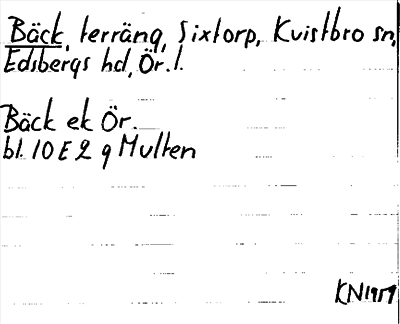 Bäck, terräng, Sixtorp, Kvistbro sn,
Edsbergs hd, Ör. l.
Bäck ek Ör.
bl. 10 E 2 g Multen
KN 1959